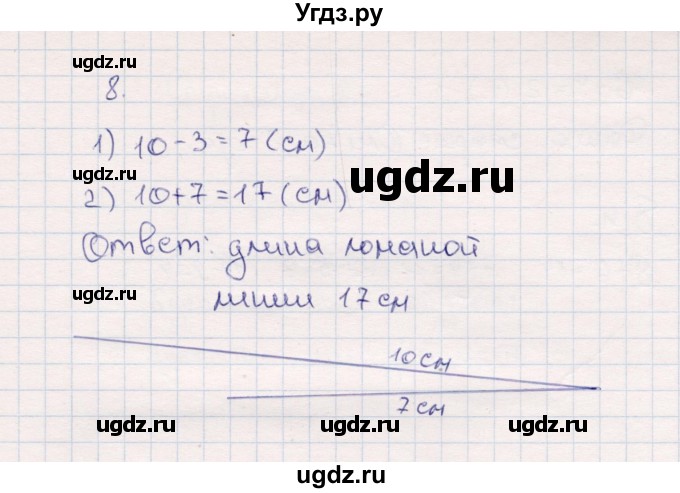 Угдз.ру
ugdz.ru
8.
1) 10-3=7 (см)
2) 10+7=17 (см)
ugdz.ru
Ответ: длина ломаной
ugdz.ru
линии 17 см
10 см
7 см
ugdz.ru ugdz.ru ugdz.ru
ugdz.ru